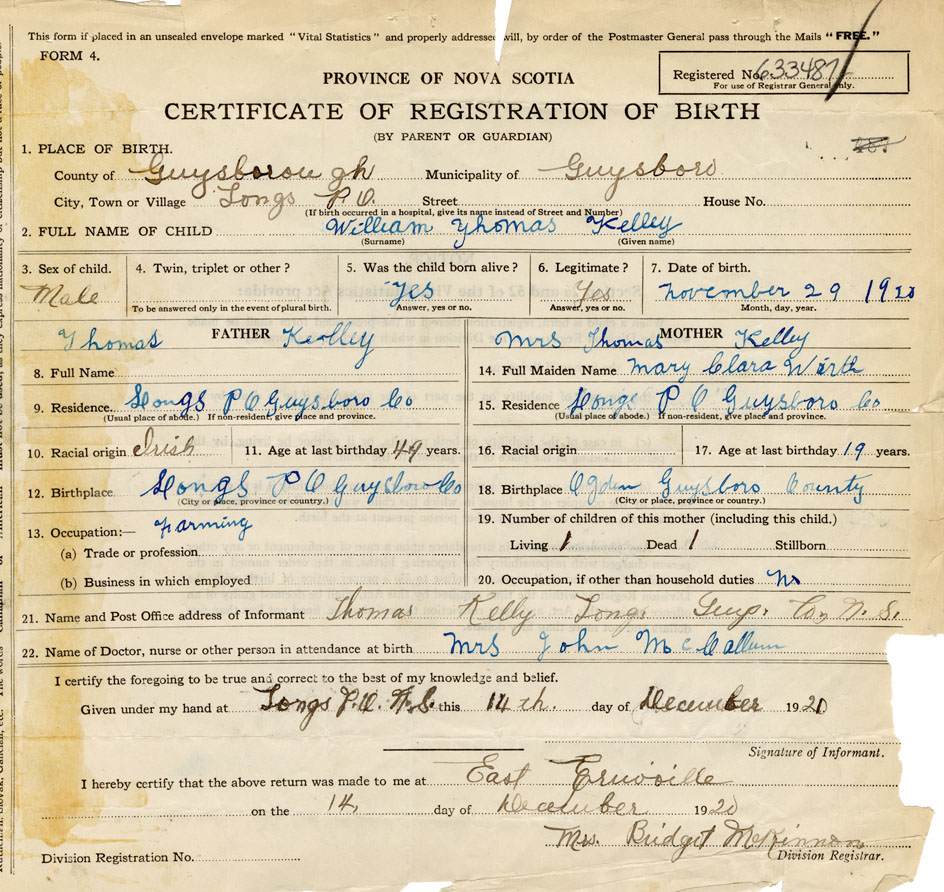 This form if placed in an unsealed envelope marked "Vital Statistics" and properly addressed will, by order of the Postmaster General pass through the Mails "FREE."
FORM 4.
PROVINCE OF NOVA SCOTIA
Registered No. 633487
For use of Registrar General only.
CERTIFICATE OF REGISTRATION OF BIRTH
(BY PARENT OR GUARDIAN)
1. PLACE OF BIRTH.
County of Guysborough Municipality of Guysboro
City, Town or Village Longs P.O. Street House No.
(If birth occurred in a hospital, give its name instead of Street and Number)
2. FULL NAME OF CHILD William Thomas Kelley
(Surname) (Given name)
3. Sex of child. 4. Twin, triplet or other? 5. Was the child born alive? 6. Legitimate? 7. Date of birth.
Male Yes Yes November 29 1920
To be answered only in the event of plural birth. Answer, yes or no. Answer, yes or no. Month, day, year.
Thomas FATHER Kelley Mrs Thomas MOTHER Kelley
8. Full Name 14. Full Maiden Name Mary Clara Wirth
9. Residence. Longs P O Guysboro Co 15. Residence Longs P O Guysboro Co
(Usual place of abode.) If non-resident, give place and province. (Usual place of abode.) If non-resident, give place and province.
10. Racial origin Irish 11. Age at last birthday 49 years. 16. Racial origin 17. Age at last birthday 19 years.
12. Birthplace Longs P O Guysboro Co 18. Birthplace Ogden Guysboro County
(City or place, province or country.) (City or place, province or country.)
13. Occupation:— Farming 19. Number of children of this mother (including this child.)
(a) Trade or profession Living 1 Dead 1 Stillborn
(b) Business in which employed 20. Occupation, if other than household duties No
21. Name and Post Office address of Informant Thomas Kelly Longs Guys. Co, N. S.
22. Name of Doctor, nurse or other person in attendance at birth Mrs John McCallum
I certify the foregoing to be true and correct to the best of my knowledge and belief.
Given under my hand at Longs P.O. N.S. this 14th. day of December 1920
Signature of Informant.
I hereby certify that the above return was made to me at East Erinville
on the 14, day of December 1920
Mrs. Bridget McKinnon
Division Registration No. Division Registrar.